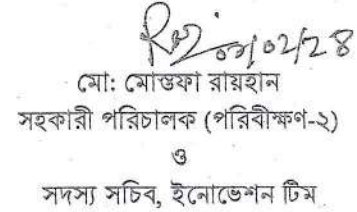 ০১/০২/২৪
মো: মোস্তফা রায়হান
সহকারী পরিচালক (পরিবীক্ষণ-২)
ও
সদস্য সচিব, ইনোভেশন টিম